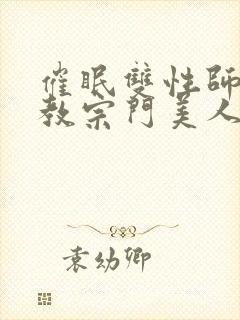 催眠雙性師
教宗門美人
袁幼卿